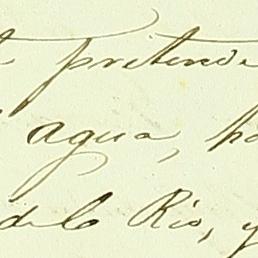 pretende
agua, ha
del Rio, y